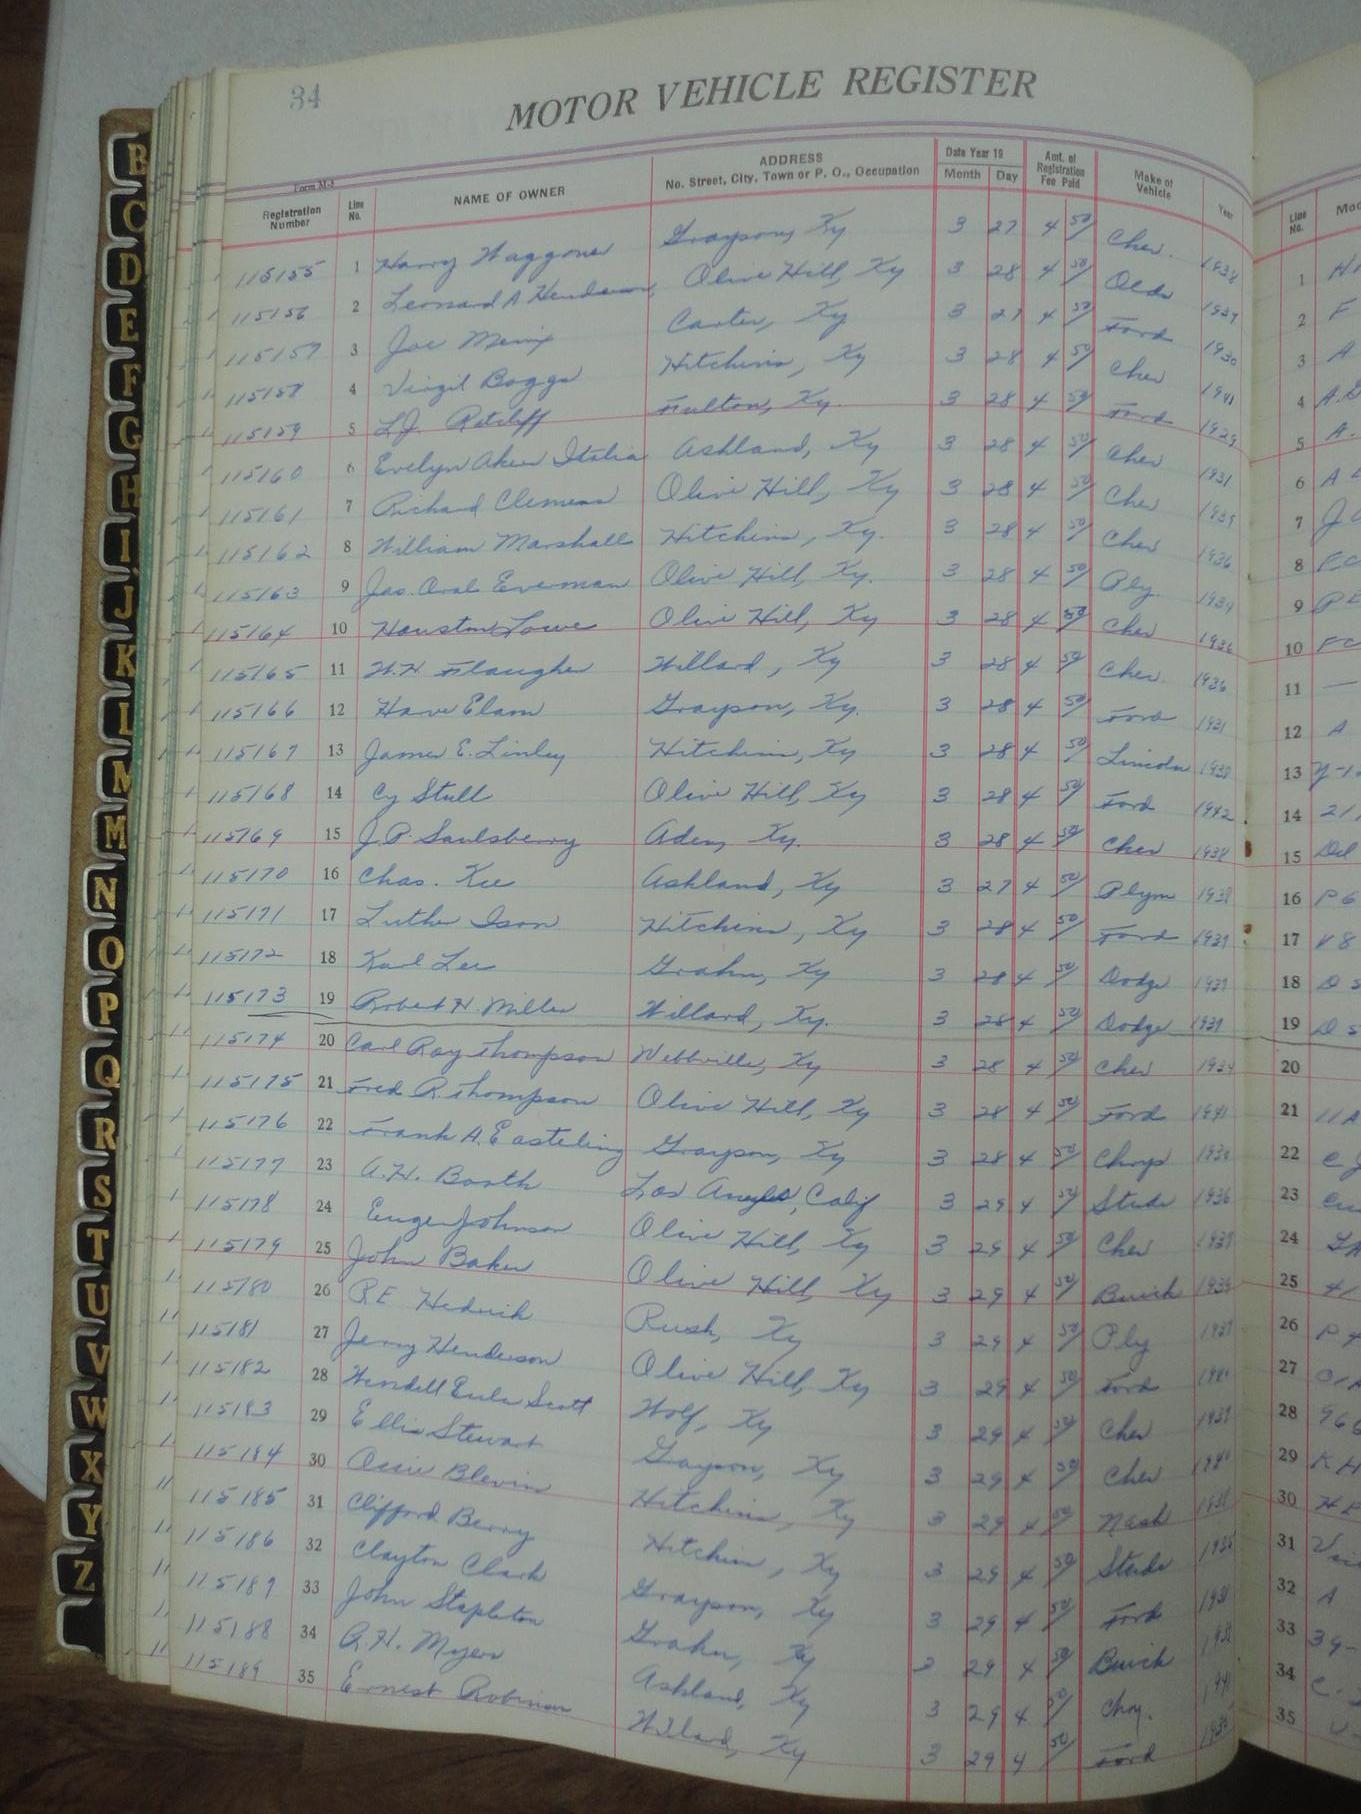 34
MOTOR VEHICLE REGISTER
Form M-3
Registration Number Line No. NAME OF OWNER ADDRESS No. Street, City, Town or P. O., Occupation Date Year 19 Month Day Amt. of Registration Fee Paid Make of Vehicle Year Line No.
115155 1 Harry Waggoner Grayson, Ky 3 27 4 50/ Chev. 1938 1
115156 2 Leonard A Henderson, Olive Hill, Ky 3 28 4 50/ Olds 1937 2 F
115157 3 Joe Carter, Ky 3 27 4 50/ Ford 1930 3 A
115158 4 Virgil Boggs Hitchins, Ky 3 28 4 50/ Chev 1941 4
115159 5 L.J. Ratcliff Fulton, Ky. 3 28 4 50/ Ford 1929 5 A.
115160 6 Evelyn Aker Italia Ashland, Ky 3 28 4 50/ Chev 1931 6
115161 7 Richard Clemens Olive Hill, Ky 3 28 4 50/ Chev 1935 7
115162 8 William Marshall Hitchins, Ky. 3 28 4 50/ Chev 1936 8
115163 9 Jas. Oral Everman Olive Hill, Ky. 3 28 4 50/ Ply. 9
115164 10 Houston Lowe Olive Hill, Ky 3 28 4 50/ Chev 1936 10
115165 11 W.H Flaugher Willard, Ky 3 28 4 50/ Chev. 1936 11 —
115166 12 Elam Grayson, Ky. 3 28 4 50/ Ford 1931 12 A
115167 13 James E. Linley Hitchins, Ky 3 28 4 50/ Lincoln 1938 13
115168 14 Cy Stull Olive Hill, Ky 3 28 4 50/ Ford 1942 14
115169 15 J.P. Saulsberry Aden, Ky. 3 28 4 50/ Chev 1938 15
115170 16 Chas. Kee Ashland, Ky 3 27 4 50/ Plym 1938 16 P6
115171 17 Luther Ison Hitchins, Ky 3 28 4 50/ Ford 1937 17 V8
115172 18 Karl Lee Grahn, Ky 3 28 4 50/ Dodge 1937 18 D5
115173 19 Robert H. Miller Willard, Ky. 3 28 4 50/ Dodge 1937 19 D5
115174 20 Carl Ray Thompson Webbville, Ky 3 28 4 50/ Chev 1934 20
115175 21 Fred R. Thompson Olive Hill, Ky 3 28 4 50/ Ford 1941 21 11A
115176 22 Frank A. Easterling Grayson, Ky 3 28 4 50/ Chrys 1930 22
115177 23 A.H. Booth Los Angeles, Calif 3 29 4 50/ Stude 1936 23
115178 24 Eugen Johnson Olive Hill, Ky 3 29 4 50/ Chev 1937 24
115179 25 John Baker Olive Hill, Ky 3 29 4 50/ Buick 1936 25
115180 26 R E Hedrick Rush, Ky 3 29 4 50/ Ply 1937 26
115181 27 Jerry Henderson Olive Hill, Ky 3 29 4 50/ Ford 27
115182 28 Wendell Euler Scott Wolf, Ky 3 29 4 50/ Chev 1937 28
115183 29 Ellis Stewart Grayson, Ky 3 29 4 50/ Chev 1940 29 KH
115184 30 Ossie Blevin Hitchins, Ky 3 29 4 50/ Nash 1938 30
115185 31 Clifford Berry Hitchins, Ky 3 29 4 50/ Stude 31
115186 32 Clayton Clark Grayson, Ky 3 29 4 50/ Ford 1931 32 A
115187 33 John Stapleton Grahn, Ky 3 29 4 50/ Buick 33
115188 34 R.H. Myers Ashland, Ky 3 29 4 50/ Chry. 1941 34
115189 35 Ernest Robinson Willard, Ky 3 29 4 50/ Ford 35
B
C
D
E
F
G
H
I
J
K
L
M
M
N
O
P
Q
R
S
T
U
V
W
X
Y
Z